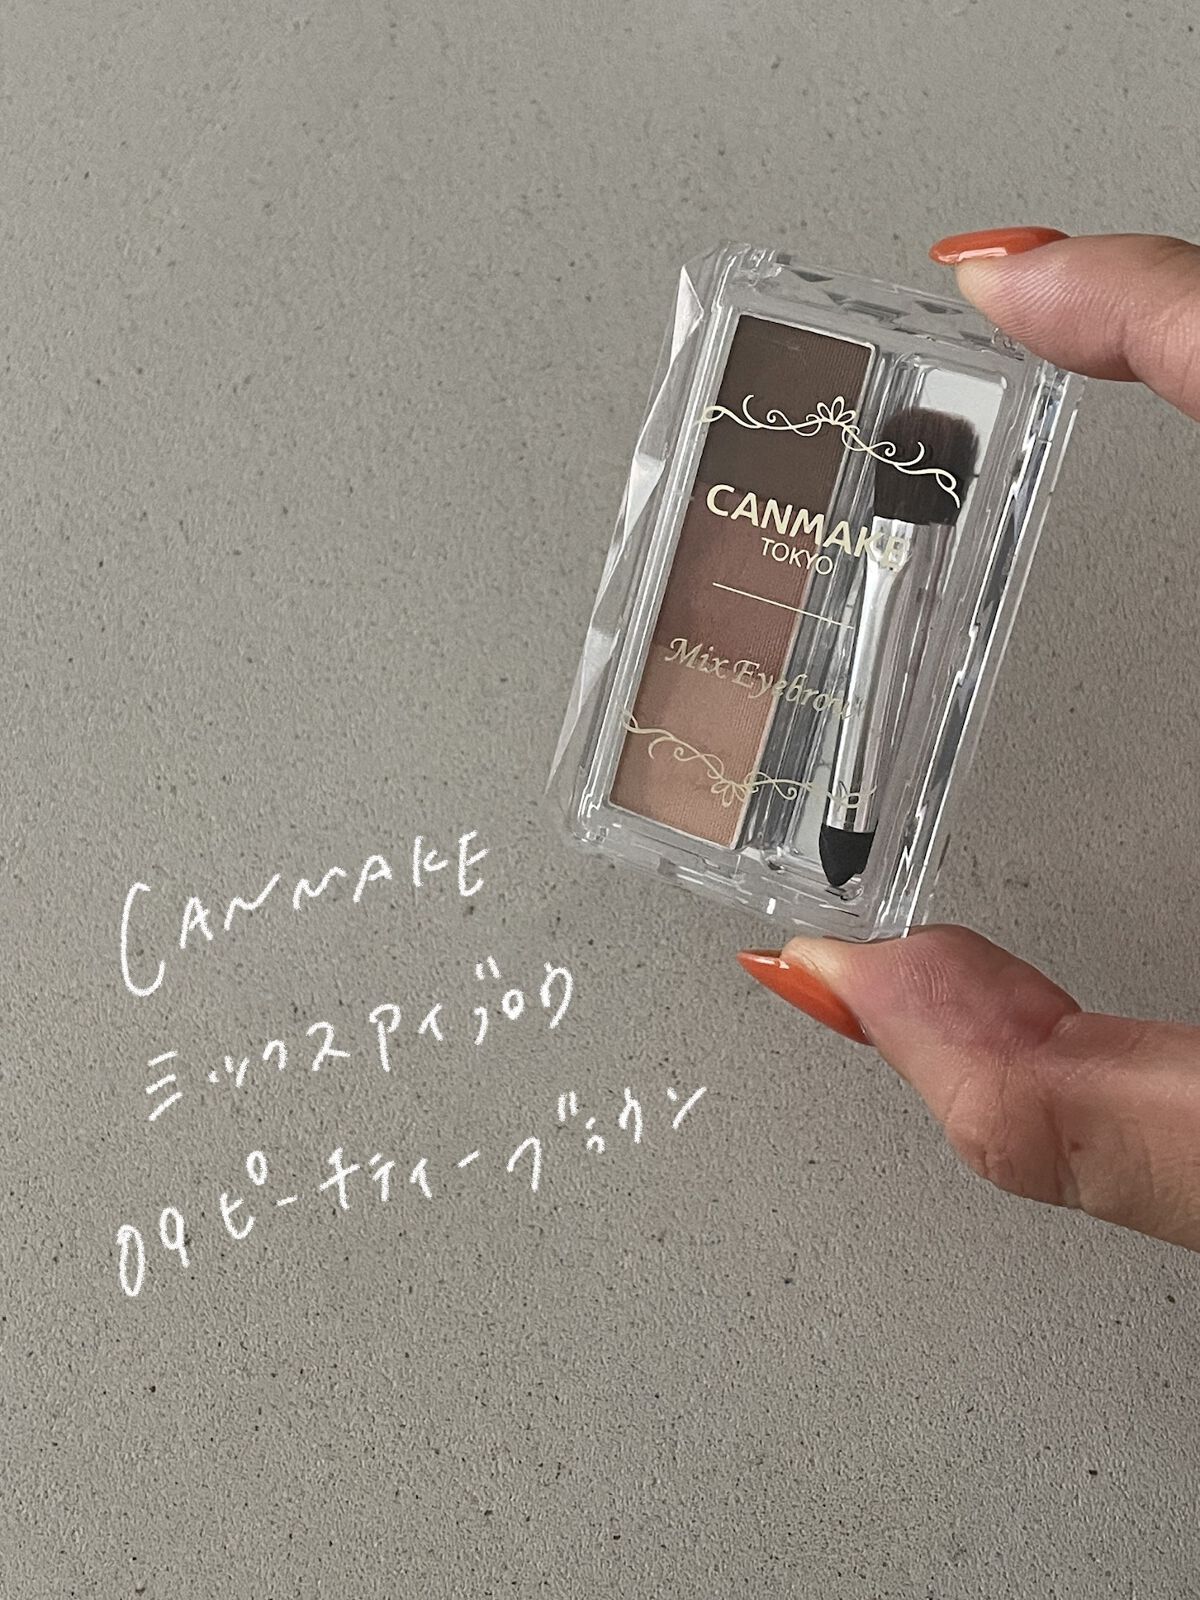 CANMAKE
TOKYO
Mix Eyebrow
CANMAKE
ミックスアイブロウ
09ピーチティーブラウン